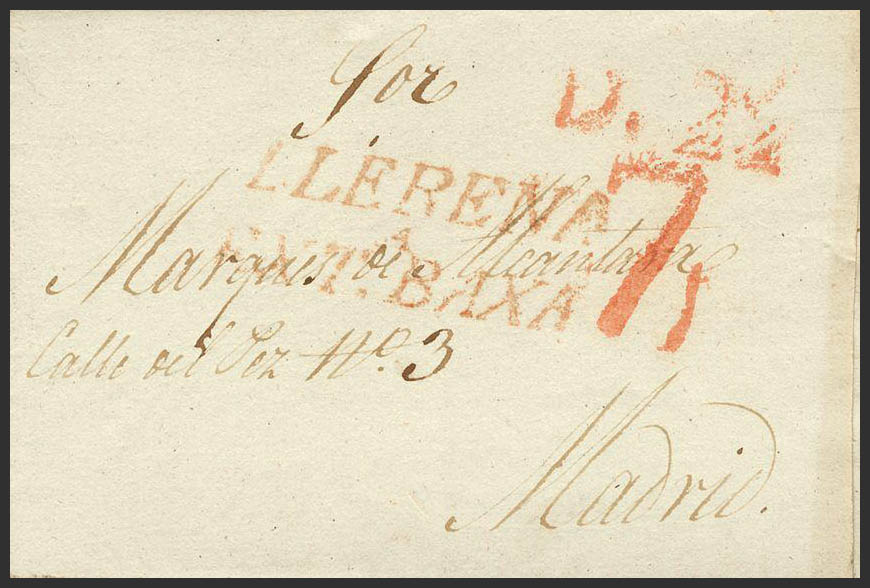 Sor
LLERENA
EXT.A BAXA
7
Marques de Alcantara
Calle del Pez Nº 3
Madrid.